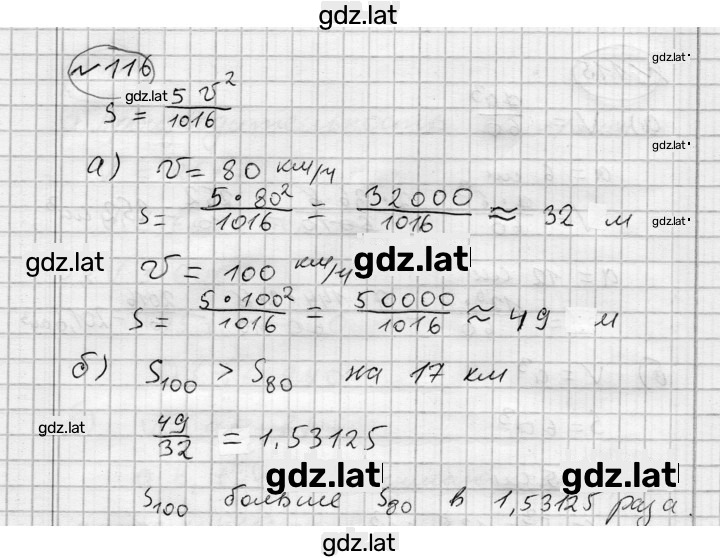 gdz.lat
gdz.lat
№116
gdz.lat
S = 5 v² / 1016
gdz.lat
а) v = 80 км/ч
S = 5 • 80² / 1016 = 32000 / 1016 ≈ 32 м
gdz.lat
gdz.lat
v = 100 км/ч
gdz.lat
S = 5 • 100² / 1016 = 50000 / 1016 ≈ 49 м
б) S₁₀₀ > S₈₀ на 17 км
gdz.lat
49 / 32 = 1,53125
gdz.lat
gdz.lat
S₁₀₀ больше S₈₀ в 1,53125 раза.
gdz.lat